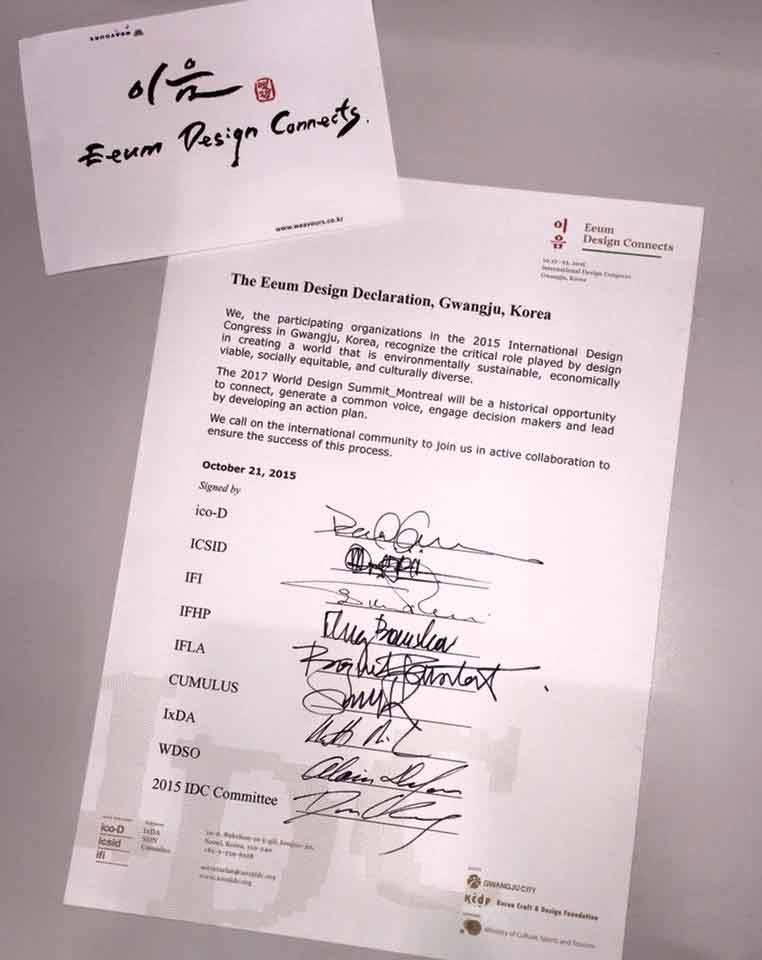 이음
Eeum Design Connects.
www.weavours.co.kr
이음
Eeum
Design Connects
International Design Congress
Gwangju, Korea
The Eeum Design Declaration, Gwangju, Korea
We, the participating organizations in the 2015 International Design
Congress in Gwangju, Korea, recognize the critical role played by design
in creating a world that is environmentally sustainable, economically
viable, socially equitable, and culturally diverse.
The 2017 World Design Summit_Montreal will be a historical opportunity
to connect, generate a common voice, engage decision makers and lead
by developing an action plan.
We call on the international community to join us in active collaboration to
ensure the success of this process.
October 21, 2015
Signed by
ico-D
ICSID
IFI
IFHP
IFLA
CUMULUS
IxDA
WDSO
2015 IDC Committee
ico-D
icsid
ifi
IxDA
Cumulus
GWANGJU CITY
kcdf Korea Craft & Design Foundation
Ministry of Culture, Sports and Tourism